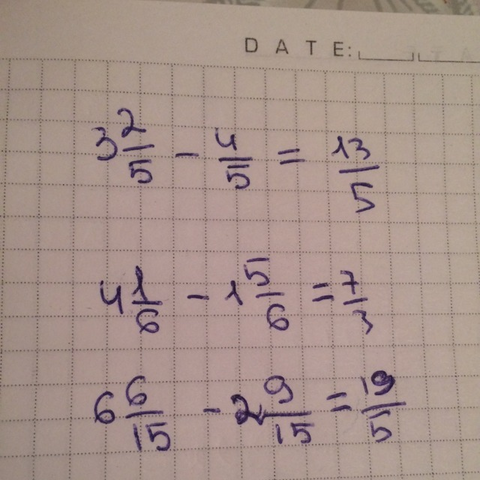 DATE:
3 2/5 - 4/5 = 13/5
4 1/6 - 1 5/6 = 7/3
6 6/15 - 2 9/15 = 19/5